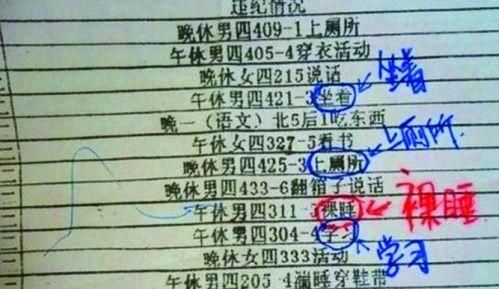 违纪情况
晚休男四409-1上厕所
午休男四405-4穿衣活动
晚休女四215说话
午休男四421-3坐着
坐着
晚一(语文)北5后1吃东西
午休女四327-5看书
上厕所
晚休男四425-3上厕所
晚休男四433-6翻箱子说话
午休男四311-3裸睡
裸睡
午休男四304-4学习
学习
晚休女四333活动
午休男四205 4 睡穿鞋带